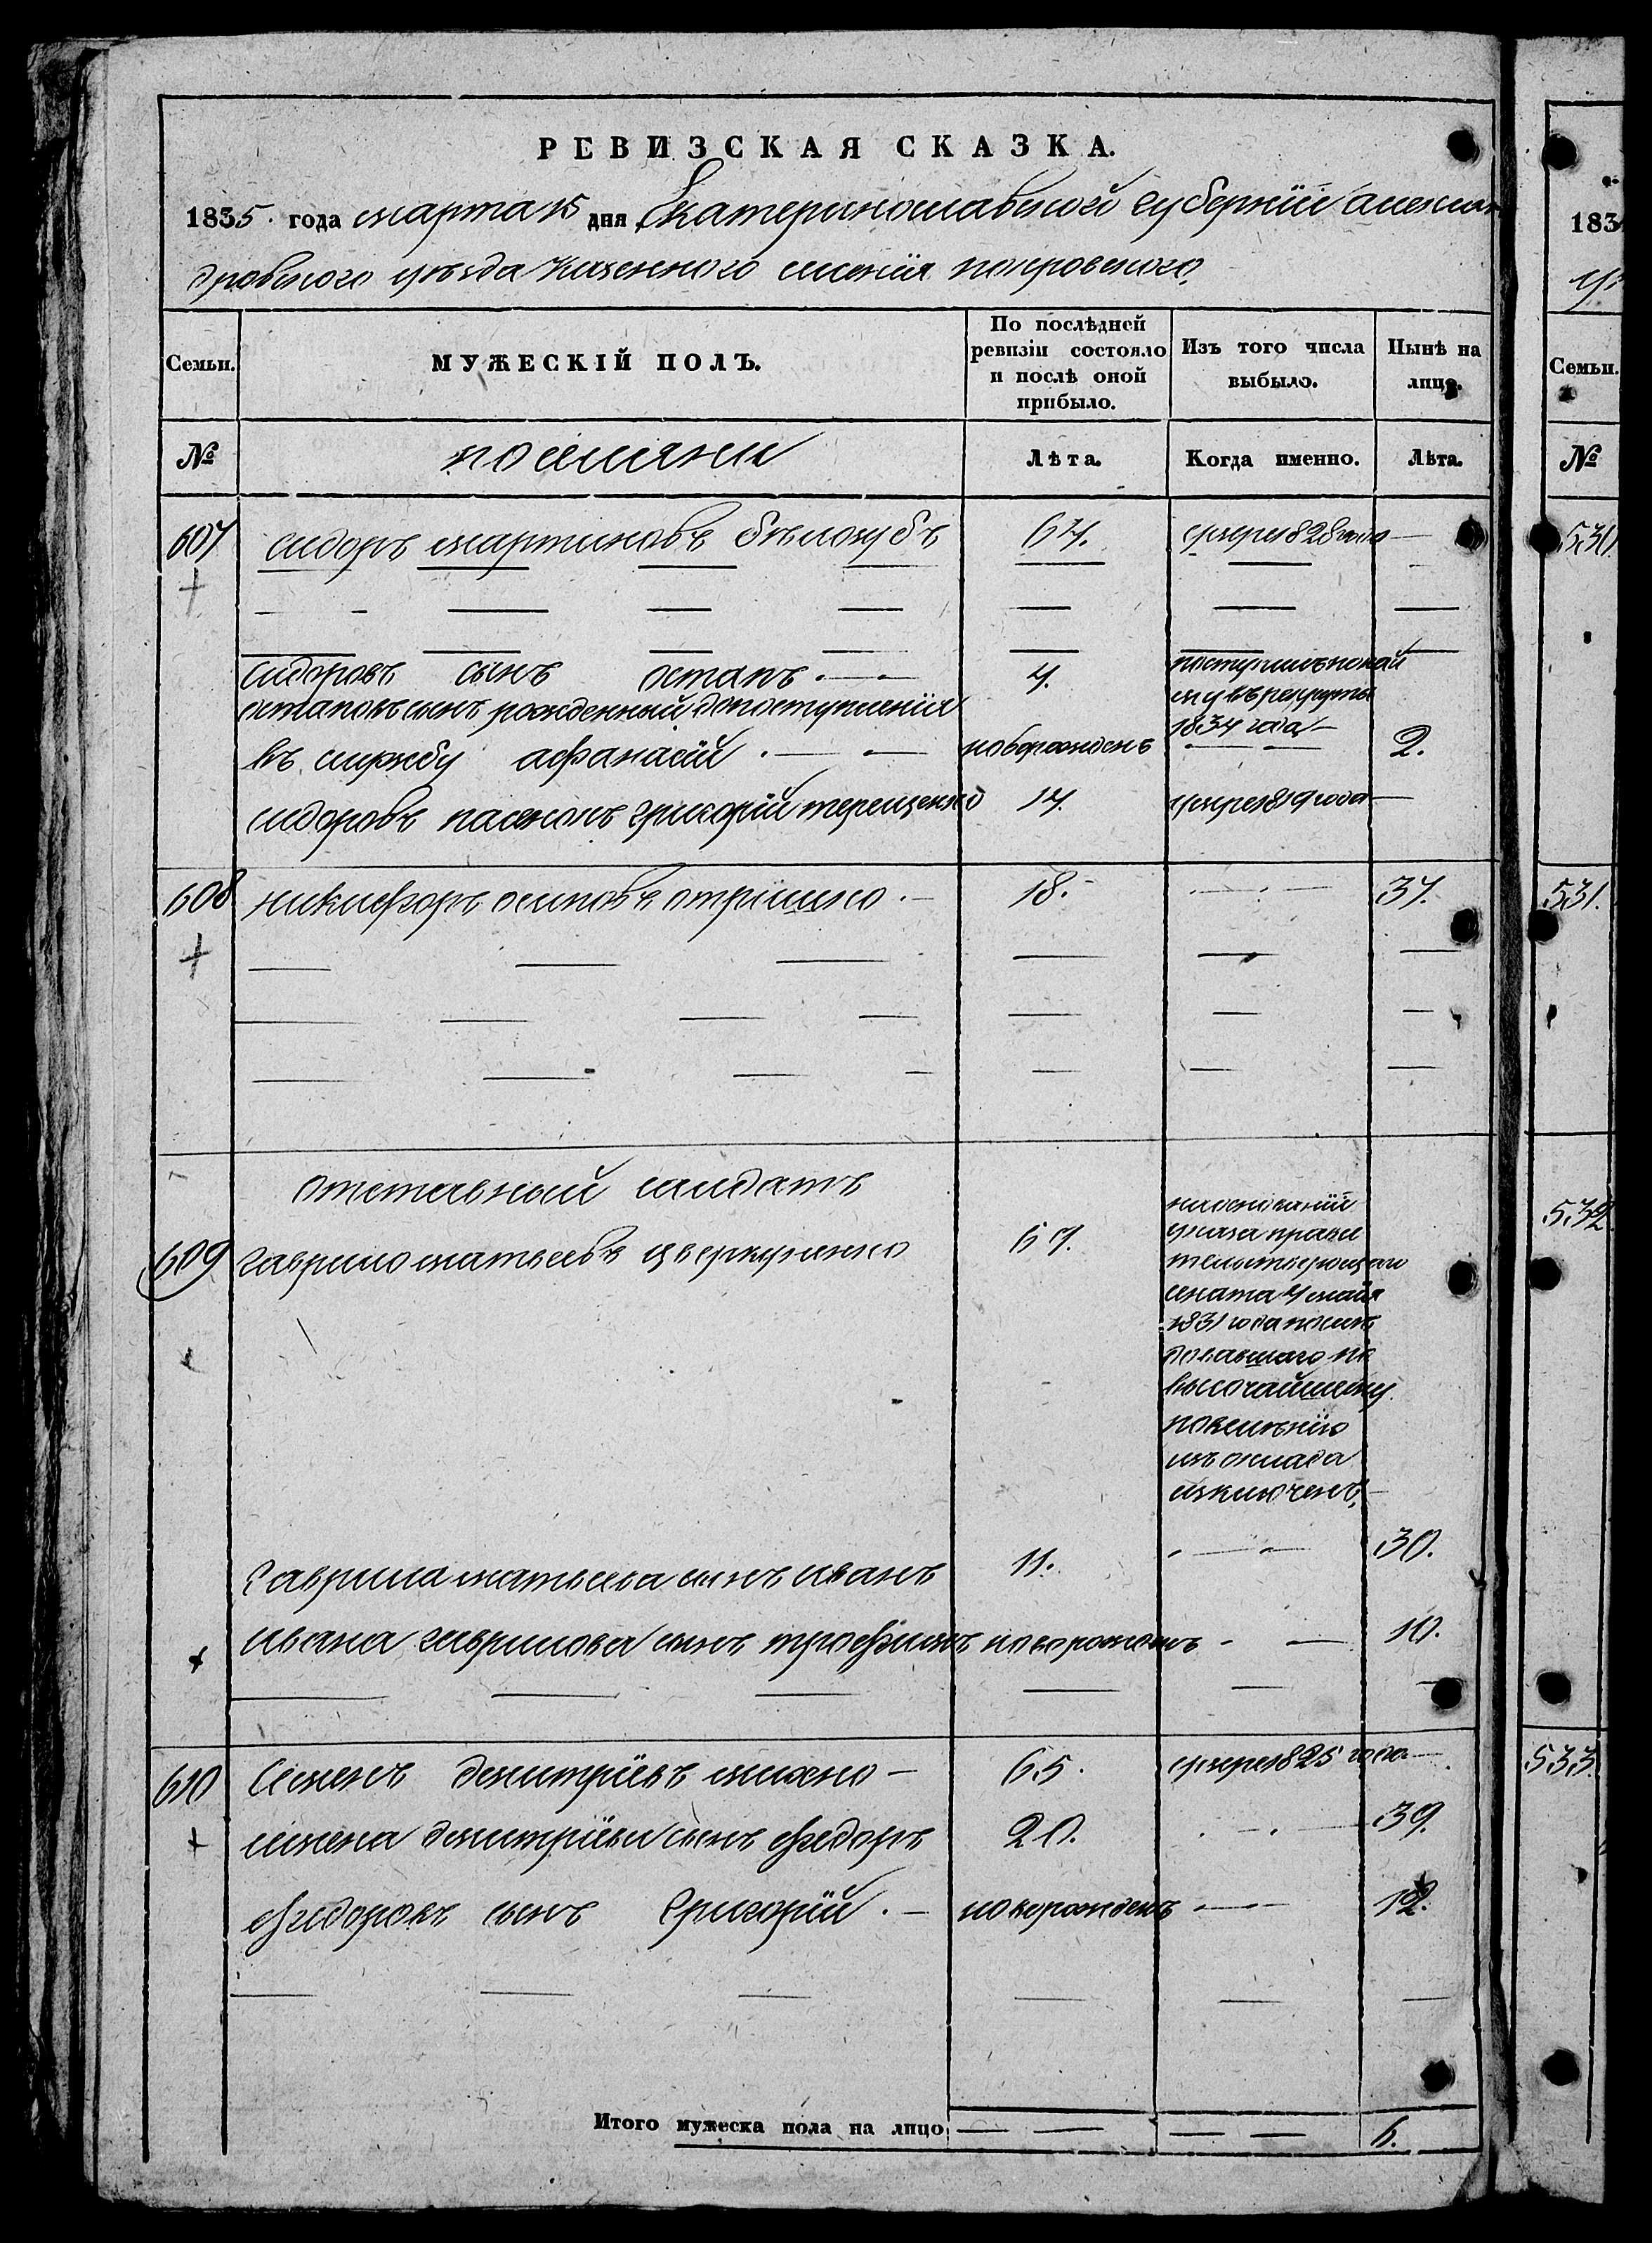 РЕВИЗСКАЯ СКАЗКА.
1835. года марта 15 дня Екатеринославской губернїи Алексан
дровского уѣзда казенного селенїя покровского,
Семьи.
МУЖЕСКІЙ ПОЛЪ.
По послѣдней ревизіи состояло и послѣ оной прибыло.
Изъ того числа выбыло.
Нынѣ на лицо.
№
поселяни
Лѣта.
Когда именно.
Лѣта.
607 сидоръ мартиновъ бѣлозубъ 67. умере 1828 года
сидоровъ сынъ остапъ 7. поступилъ
въ рекруты
1834 года
остаповъ сынъ рожденный до поступленїя
въ службу афанасїй новорожденъ 2.
сидоровъ пасенокъ григорїй терещенко 14. умере 1819 года
608 никифоръ осиповъ отрїшко 18. 37.
отставный салдатъ
609 гаврило матвеевъ цверкуненко 67.
на основанїи
указа прави
тельствующаго
сената 7 майя
1831 года
по
высочайшему
повелѣнїю
изъ оклада
изключенъ,
Гаврила матвеева сынъ иванъ 11. 30.
ивана гаврилова сынъ трофимъ новорожденъ 10.
610 Семенъ дмитрїевъ 65. умере 1825 года
семена дмитрїева сынъ федоръ 20. 39.
федоровъ сынъ Григорїй новорожденъ 12.
Итого мужеска пола на лицо 6.
183
Семьи.
№
530.
531.
532
533.